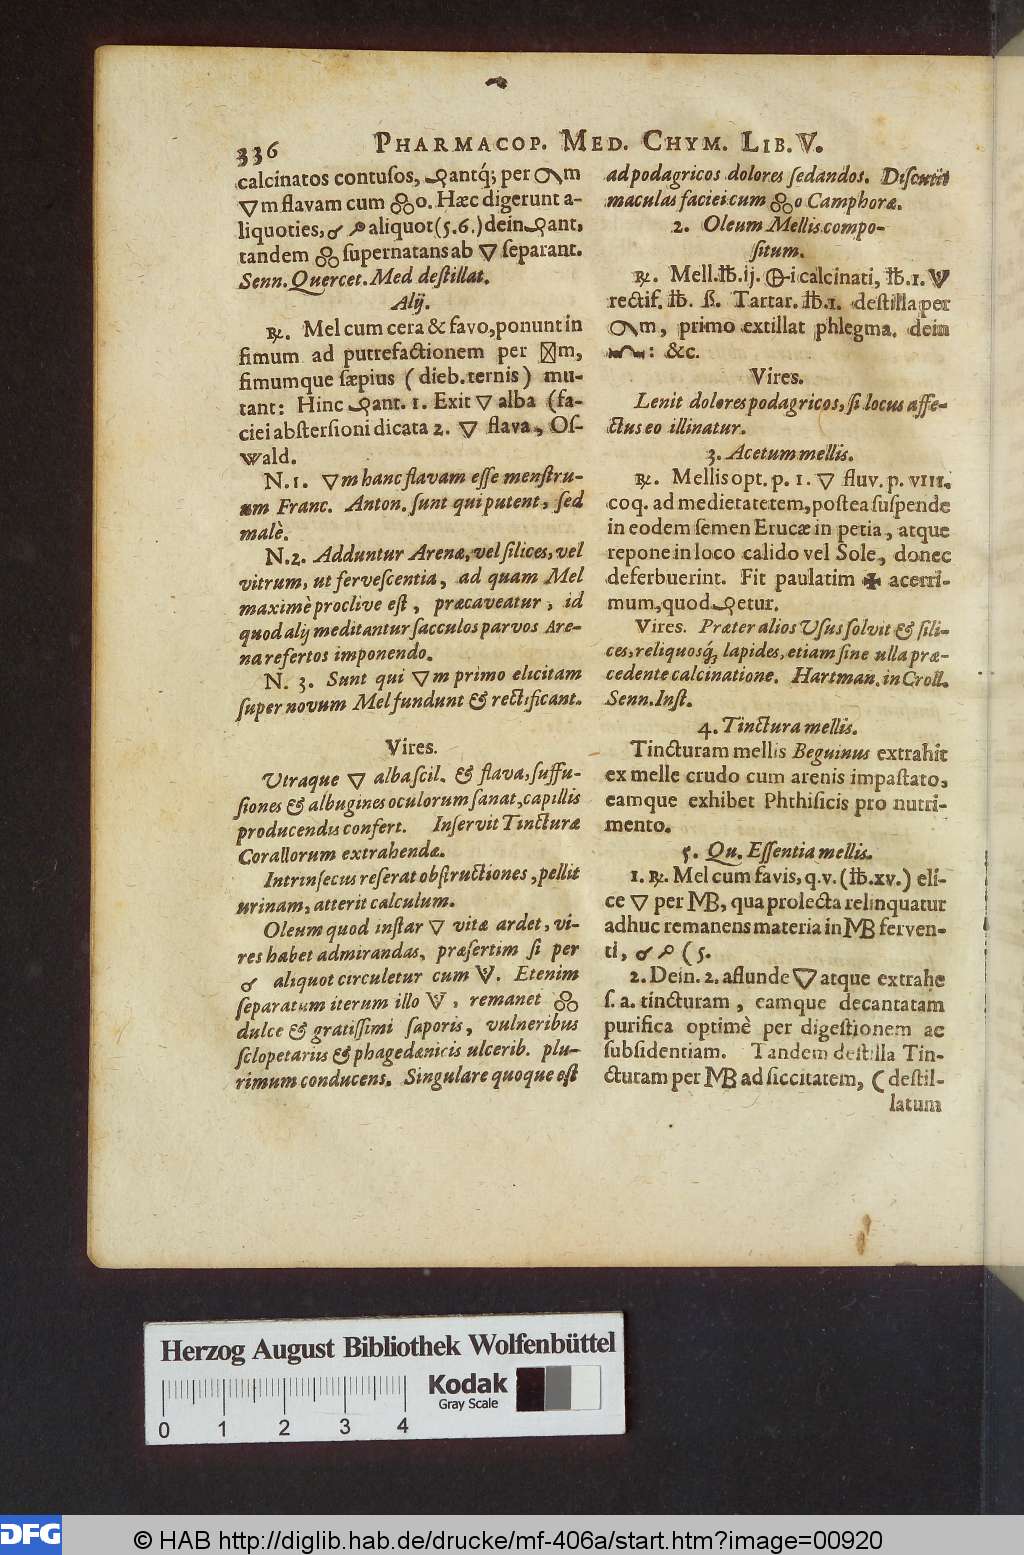 336 PHARMACOP. MED. CHYM. LIB. V.
calcinatos contusos, antq́; per m
🜄m flavam cum o. Hæc digerunt a-
liquoties, ☌ ☍ aliquot (5.6.) dein ant,
tandem supernatans ab 🜄 separant.
Senn. Quercet. Med destillat.
Alij.
℞. Mel cum cera & favo, ponunt in
fimum ad putrefactionem per m,
fimumque sæpius (dieb. ternis) mu-
tant: Hinc ant. 1. Exit 🜄 alba (fa-
ciei abstersioni dicata 2. 🜄 flava, Os-
wald.
N. 1. 🜄m hanc flavam esse menstru-
um Franc. Anton. sunt qui putent, sed
malè.
N. 2. Adduntur Arenæ, vel silices, vel
vitrum, ut fervescentia, ad quam Mel
maximè proclive est, præcaveatur, id
quod alij meditantur sacculos parvos Are-
na refertos imponendo.
N. 3. Sunt qui 🜄m primo elicitam
super novum Mel fundunt & rectificant.
Vires.
Utraque 🜄 alba scil. & flava, suffu-
siones & albugines oculorum sanat, capillis
producendis confert. Inservit Tincturæ
Corallorum extrahendæ.
Intrinsecus reserat obstructiones, pellit
urinam, atterit calculum.
Oleum quod instar 🜄 vitæ ardet, vi-
res habet admirandas, præsertim si per
☌ aliquot circuletur cum . Etenim
separatum iterum illo , remanet
dulce & gratissimi saporis, vulneribus
sclopetariis & phagedænicis ulcerib. plu-
rimum conducens. Singulare quoque est
ad podagricos dolores sedandos. Discutit
maculas faciei cum o Camphoræ.
2. Oleum Mellis compo-
situm.
℞. Mell. ℔. ij. i calcinati, ℔. 1.
rectif. ℔. ß. Tartar. ℔. 1. destilla per
m, primo extillat phlegma. dein
: &c.
Vires.
Lenit dolores podagricos, si locus affe-
ctus eo illinatur.
3. Acetum mellis.
℞. Mellis opt. p. 1. 🜄 fluv. p. VIII.
coq. ad medietatetem, postea suspende
in eodem semen Erucæ in petia, atque
repone in loco calido vel Sole, donec
deferbuerint. Fit paulatim ✠ acerri-
mum, quod etur.
Vires. Præter alios Usus solvit & sili-
ces, reliquosq́; lapides, etiam sine ulla præ-
cedente calcinatione. Hartman. in Croll.
Senn. Inst.
4. Tinctura mellis.
Tincturam mellis Beguinus extrahit
ex melle crudo cum arenis impastato,
eamque exhibet Phthisicis pro nutri-
mento.
5. Qu. Essentia mellis.
1. ℞. Mel cum favis, q.v. (℔. xv.) eli-
ce 🜄 per MB, qua prolecta relinquatur
adhuc remanens materia in MB ferven-
ti, ☌ ☍ (5.
2. Dein. 2. affunde atque extrahe
s. a. tincturam, eamque decantatam
purifica optimè per digestionem ac
subsidentiam. Tandem destilla Tin-
cturam per MB ad siccitatem, (destil-
latum
Herzog August Bibliothek Wolfenbüttel
Kodak
Gray Scale
0 1 2 3 4
DFG
© HAB http://diglib.hab.de/drucke/mf-406a/start.htm?image=00920